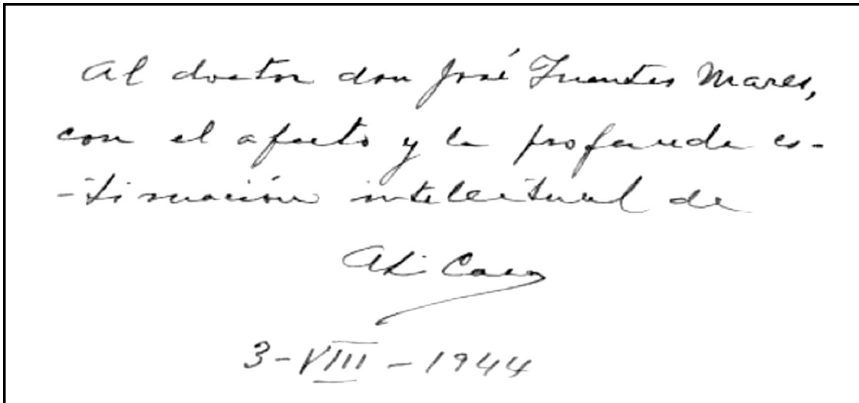 Al doctor don José Fuentes Mares,
con el afecto y la profunda es-
-timación intelectual de
A. Caso
3-VIII-1944